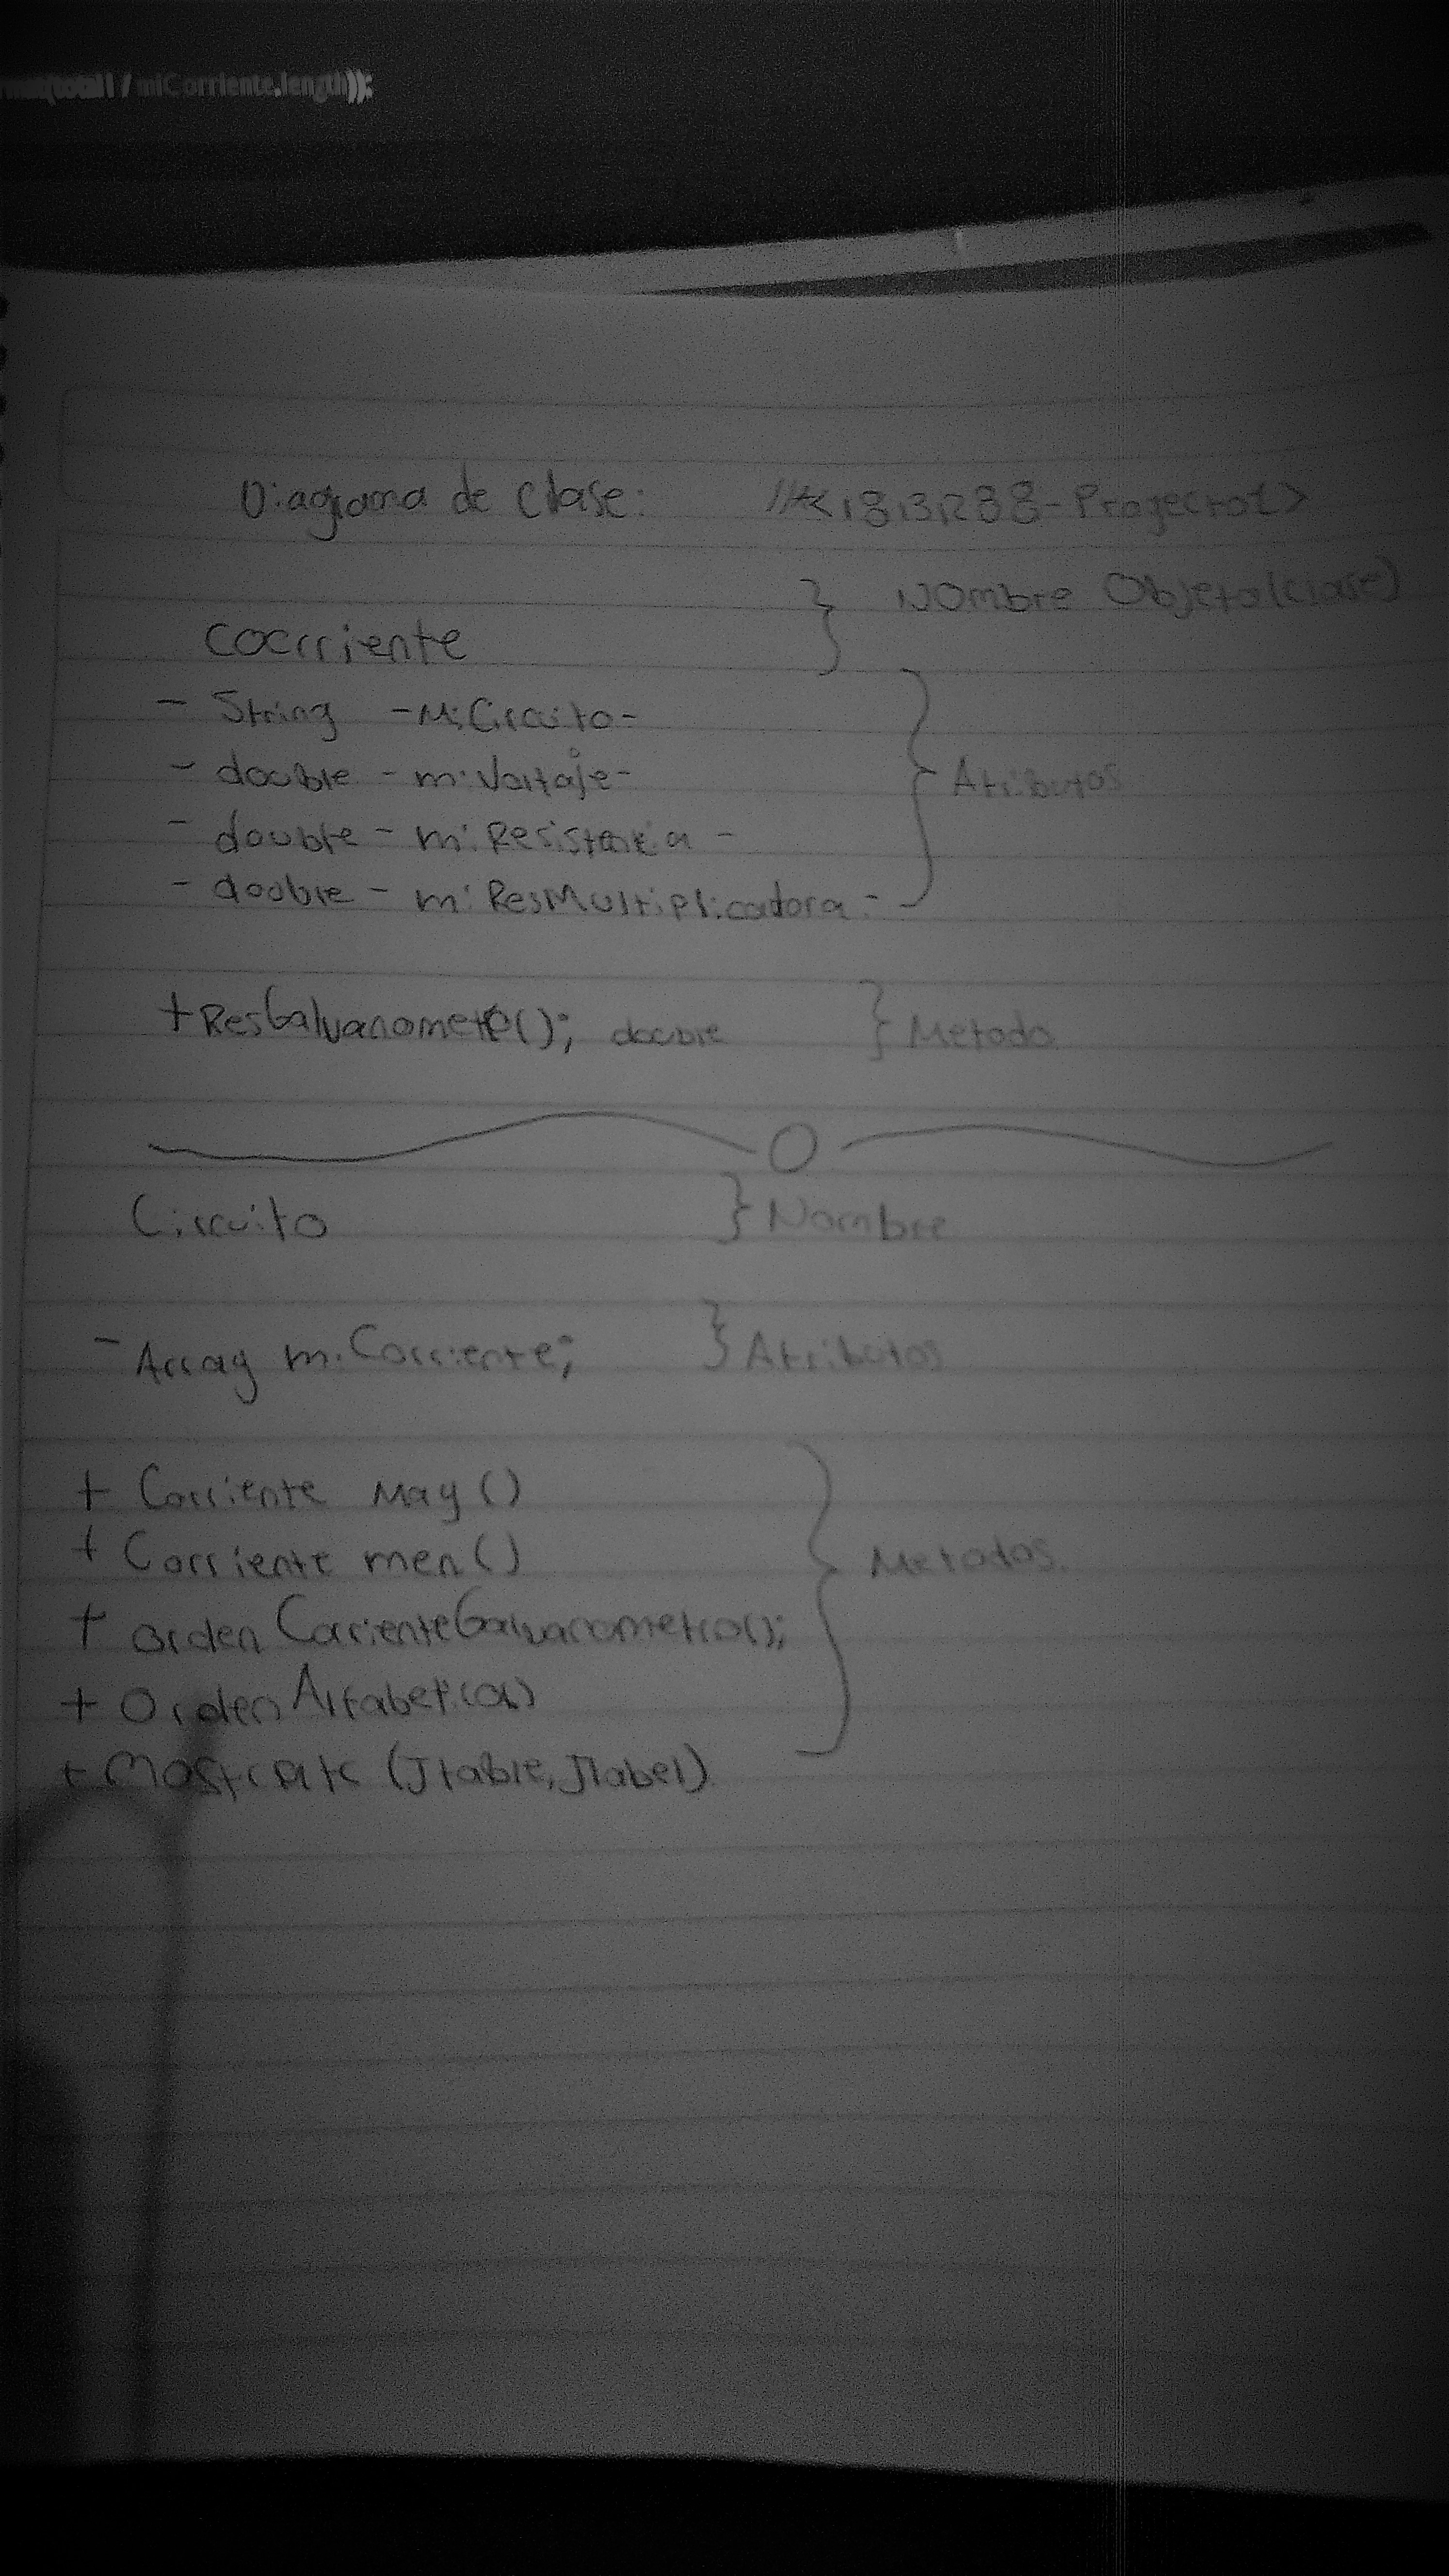 / miCorriente.length));
Diagrama de Clase: //<181R288-Proyecto1>
} Nombre Objeto(clase)
Cocrriente
- String -MiCircuito-
- double - miVoltaje-
- double - miResistencia -
- double - miResMultiplicadora -
} Atributos
+ResGalvanometro(); double } Metodo
Circuito } Nombre
- Array miCorriente; } Atributos
+ Corriente May ()
+ Corriente men ()
} Metodos.
+ Orden CorrienteGalvanometro();
+ Orden Alfabetico()
+ (Jtable, Jlabel)